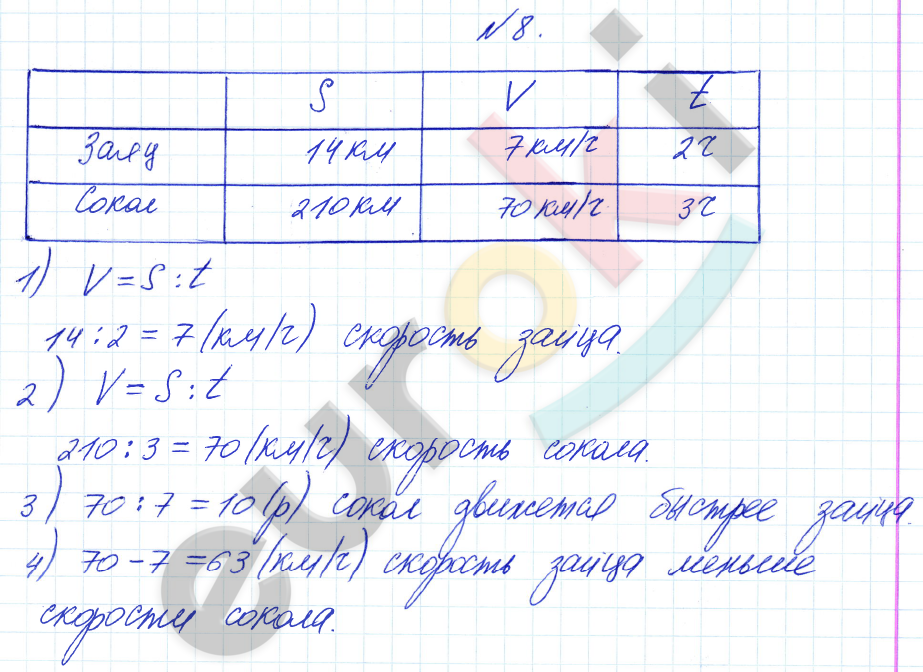 №8.
S V t
Заяц 14 км 7 км/ч 2 ч
Сокол 210 км 70 км/ч 3 ч
1) V = S : t
14 : 2 = 7 (км/ч) скорость зайца.
2) V = S : t
210 : 3 = 70 (км/ч) скорость сокола.
3) 70 : 7 = 10 (р) сокол движется быстрее зайца.
4) 70 - 7 = 63 (км/ч) скорость зайца меньше
скорости сокола.
euroki